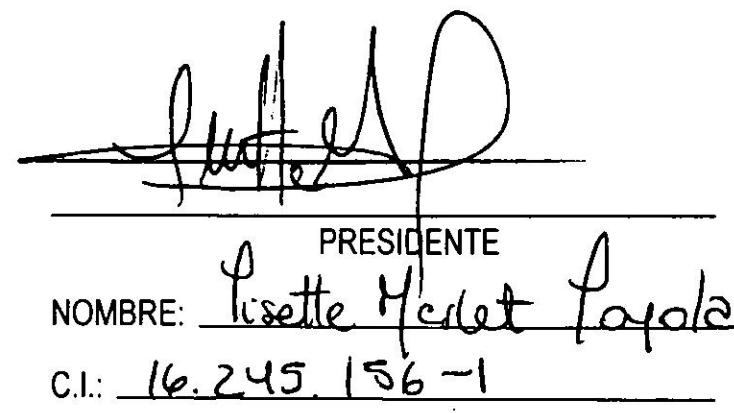 PRESIDENTE
NOMBRE: Lisette Merlet Loyola
C.I.: 16.245.156-1